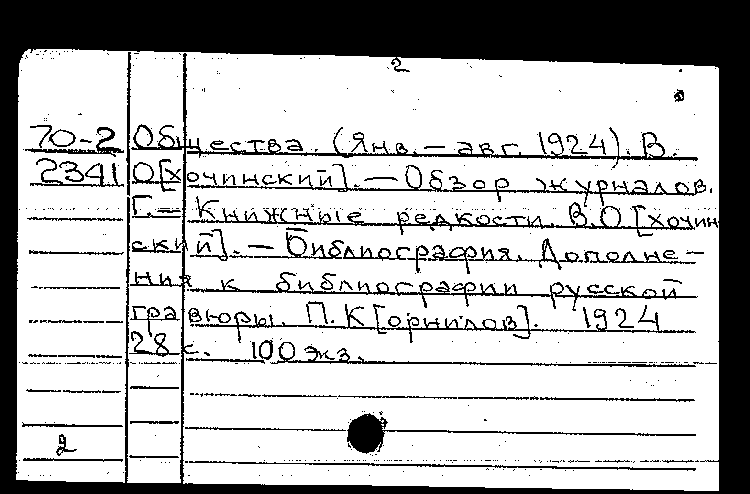 2
70-2 Общества. (Янв. — авг. 1924). В.
2341 О[хочинский]. — Обзор журналов.
Г. — Книжные редкости. В. О[хочин
ский]. — Библиография. Дополне-
ния к библиографии русской
гравюры. П. К[орнилов]. 1924
28 с. 100 экз.
2